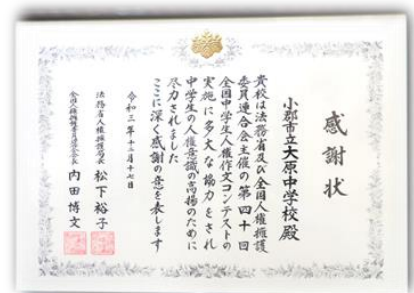 感謝状
小郡市立大原中学校殿
貴校は法務省及び全国人権擁護
委員連合会主催の第四十回
全国中学生人権作文コンテストの
実施に多大な協力をされ
中学生の人権意識の高揚のために
尽力されました
ここに深く感謝の意を表します
令和三年十二月十七日
法務省人権擁護局長 松下裕子
全国人権擁護委員連合会長 内田博文